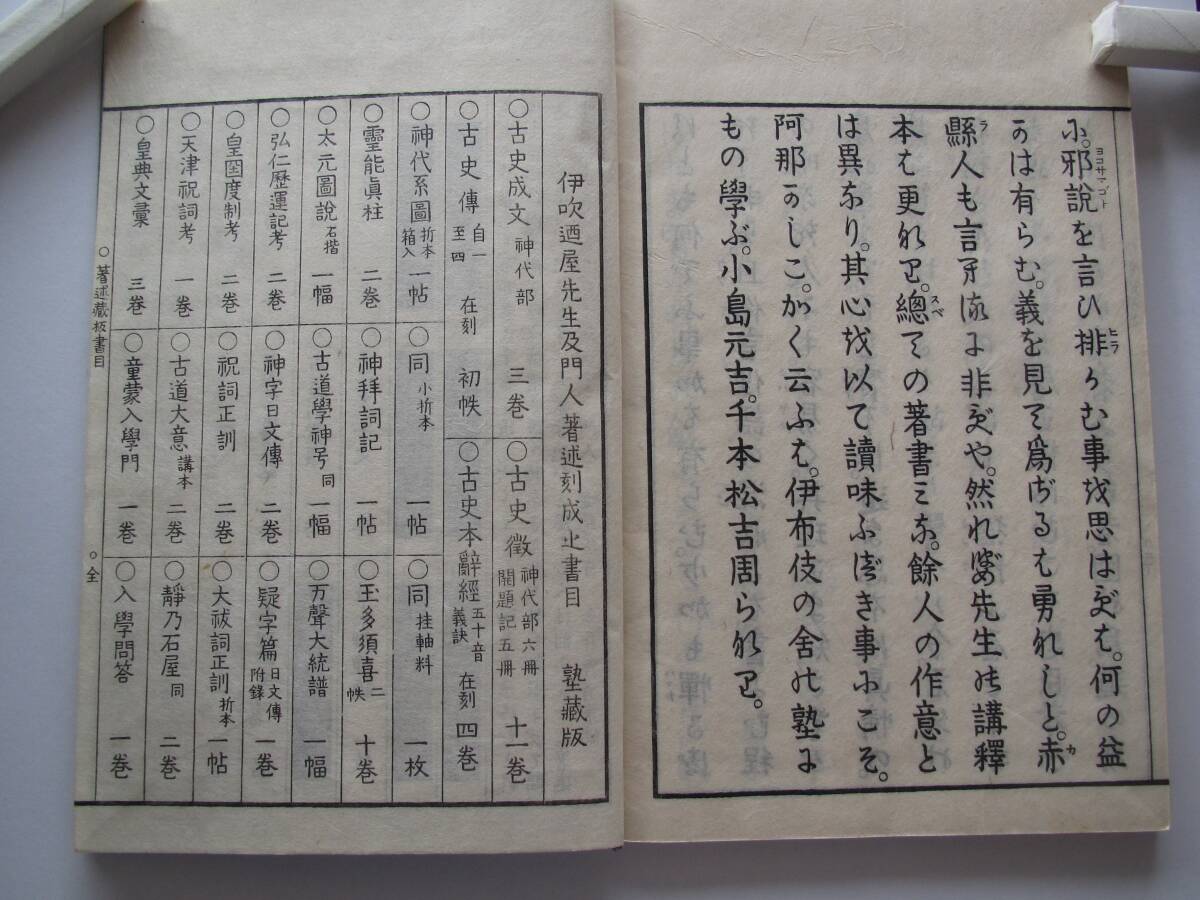 に。邪說を言ひ排けむ事を思はずは。何の益
ヨコサマゴト
ヒラ
かは有らむ。義を見て爲ざるは勇れしと。赤
カ
縣人も言るに非ずや。然れば先生の講釋
ラ
本は更れり。總ての著書みな。餘人の作意と
スベ
は異なり。其心を以て讀味ふべき事にこそ。
阿那かしこ。かく云ふは。伊布伎の舍の塾に
もの學ぶ。小島元吉。千本松吉周られり。
伊吹迺屋先生及門人著述刻成之書目 塾藏版
○古史成文 神代部 三巻
○古史徵 神代部六冊 開題記五冊 十一巻
○古史傳 自一至四 在刻 初帙
○古史本辭經 五十音義訣 在刻 四巻
○神代系圖 折本箱入 一帖
○同 小折本 一帖
○同 挂軸料 一枚
○靈能眞柱 二巻
○神拜詞記 一帖
○玉多須喜 二帙 十巻
○太元圖說 石摺 一幅
○古道學神号 同 一幅
○万聲大統譜 一幅
○弘仁歷運記考 二巻
○神字日文傳 二巻
○疑字篇 日文傳附錄 一巻
○皇国度制考 二巻
○祝詞正訓 二巻
○大祓詞正訓 折本 一帖
○天津祝詞考 一巻
○古道大意 講本 二巻
○靜乃石屋 同 二巻
○皇典文彙 三巻
○童蒙入學門 一巻
○入學問答 一巻
○著述藏板書目 ○全